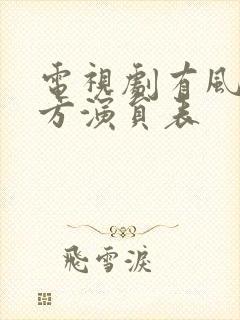 電視劇有風
方演員表
飛雪淚